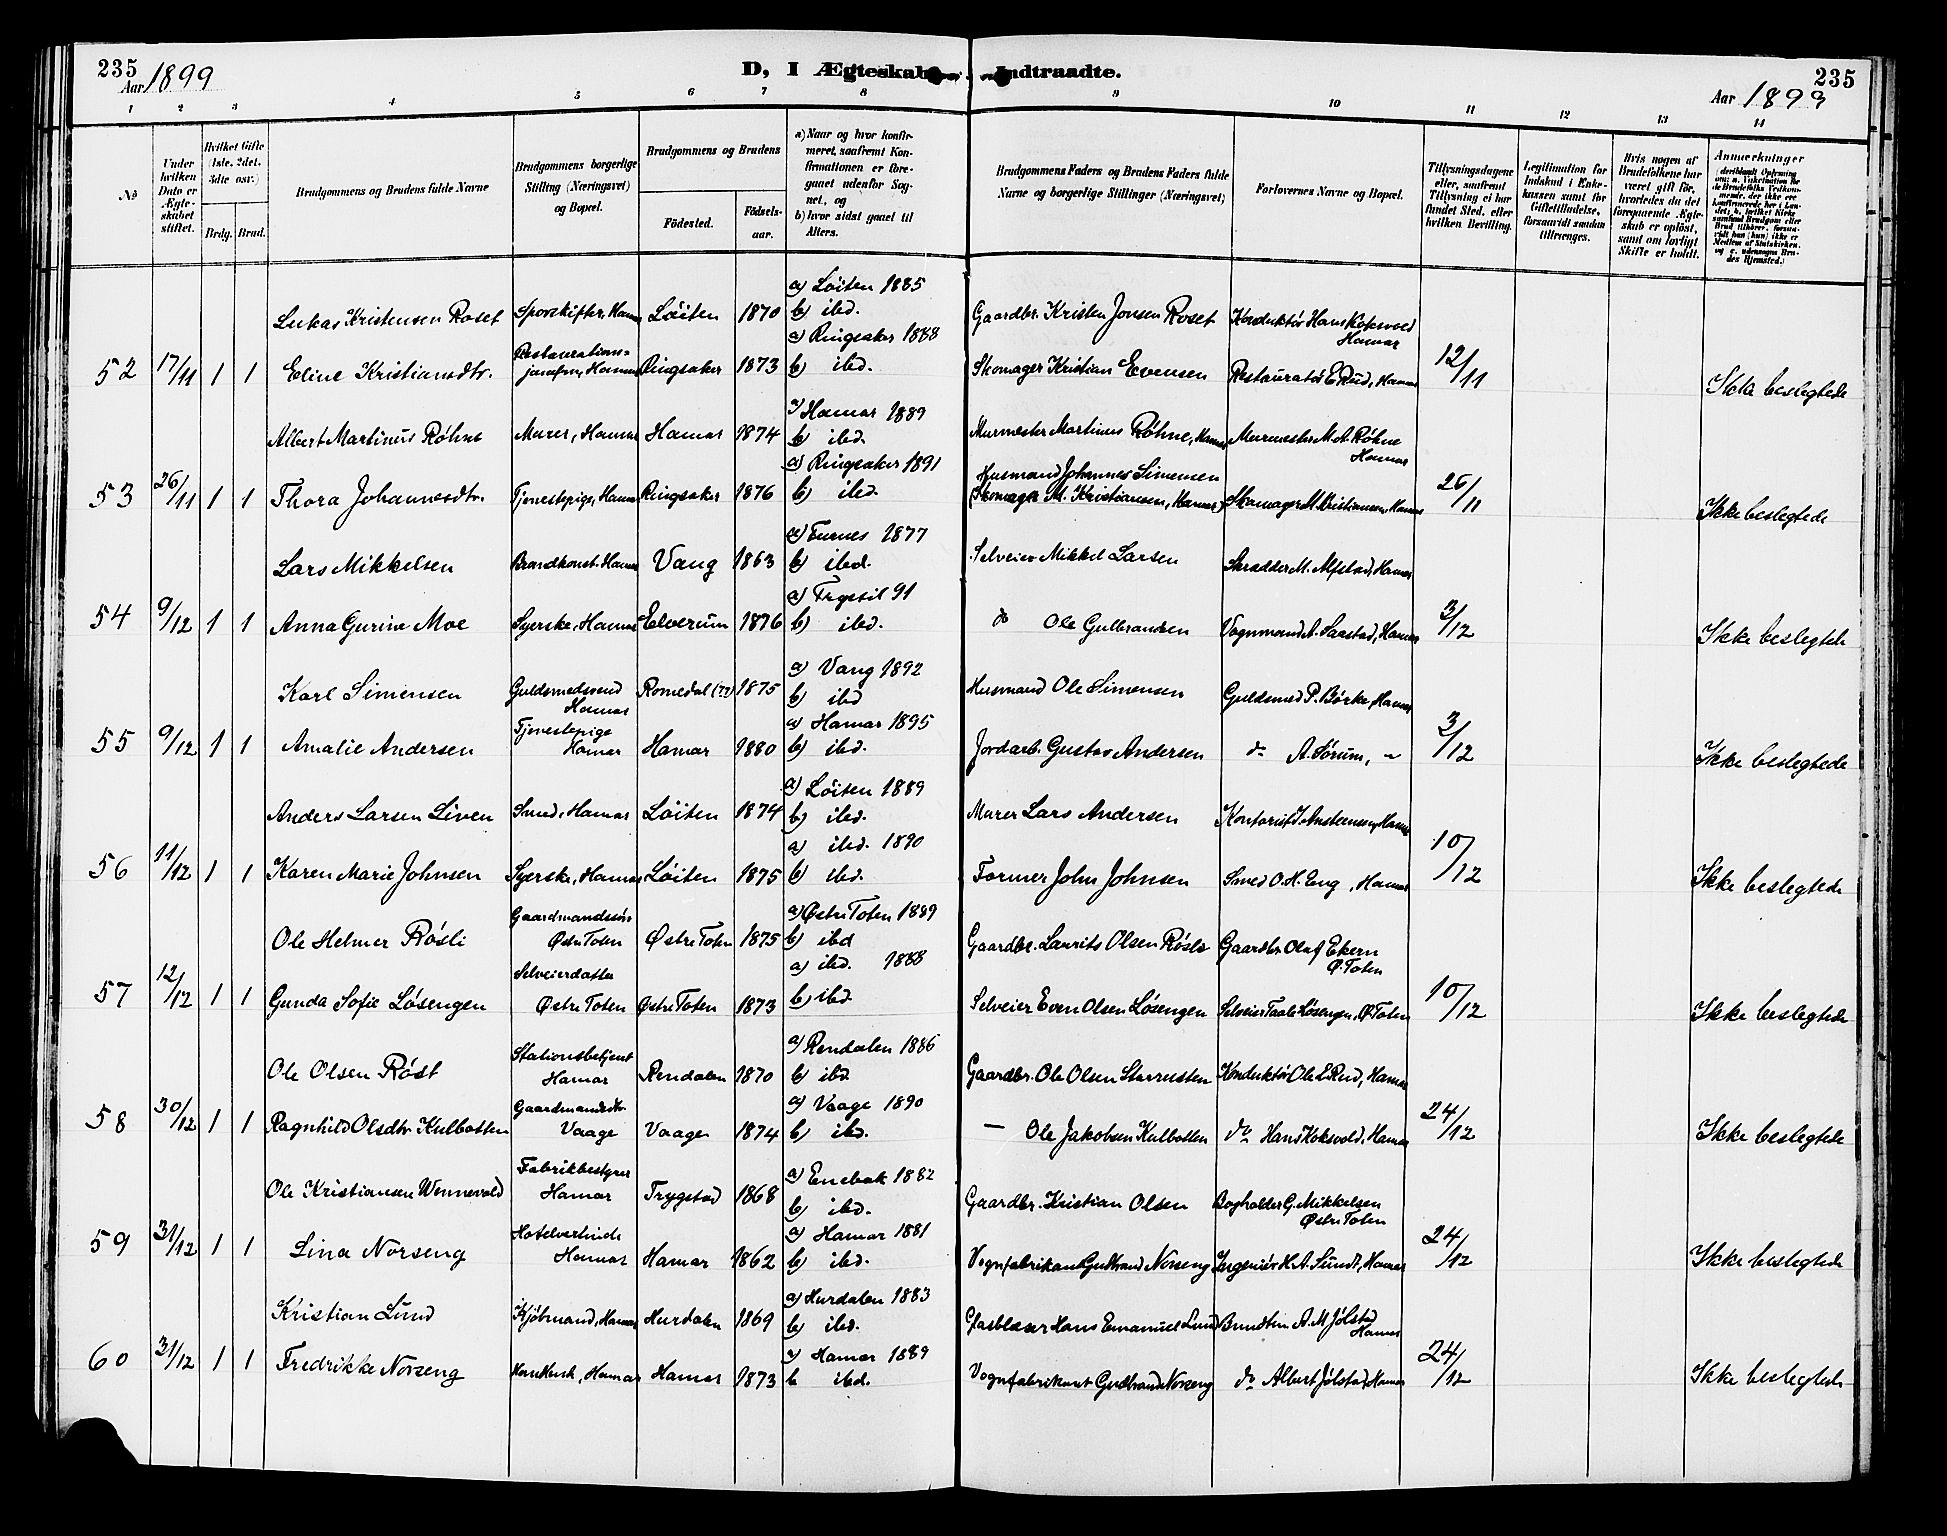 235
Aar 1899
D, I Ægteskab Indtraadte.
235
Aar 1899
1 2 3 4 5 6 7 8 9 10 11 12 13 14
No
Under hvilken Dato er Ægteskabet stiftet.
Hvilket Gifte (1ste, 2det, 3die osv.)
Brdg. Brud.
Brudgommens og Brudens fulde Navne
Brudgommens borgerlige Stilling (Næringsvei) og Bopæl.
Brudgommens og Brudens
Fødested.
Fødselsaar.
a) Naar og hvor konfirmeret, saafremt Konfirmationen er foregaaet udenfor Sognet, og
b) hvor sidst gaaet til Alters.
Brudgommens Faders og Brudens Faders fulde Navne og borgerlige Stillinger (Næringsvei)
Forlovernes Navne og Bopæl.
Tillysningsdagene eller, saafremt Tillysning ei har fundet Sted, efter hvilken Bevilling.
Legitimation for Indskud i Enkekassen samt for Giftetilladelse, forsaavidt saadan tiltrænges.
Hvis nogen af Brudefolkene har været gift før, hvorledes da det foregaaende Ægteskab er opløst, samt om lovligt Skifte er holdt.
Anmerkninger
Lukas Kristensen Roset Sporskifter, Hamar Løiten 1870 a) Løiten 1885 b) ibd. Gaardbr. Kristen Jonsen Roset Konduktør Hans Koksvold Hamar
52 17/11 1 1 Eline Kristiansdtr. Restaurations-jomfru, Hamar Ringsaker 1873 a) Ringsaker 1888 b) ibd. Skomager Kristian Evensen Restauratør E. Rud, Hamar 12/11 Ikke beslegtede
Albert Martinus Røhne Murer, Hamar Hamar 1874 a) Hamar 1889 b) ibd. Murmester Martinus Røhne, Hamar Murmester M. A. Røhne Hamar
53 26/11 1 1 Thora Johannesdtr. Tjenestepige, Hamar Ringsaker 1876 a) Ringsaker 1891 b) ibd. Husmand Johannes Simensen (Skomager M. Kristiansen, Hamar) Skomager M. Kristiansen, Hamar 26/11 Ikke beslegtede
Lars Mikkelsen Brandkonst. Hamar Vang 1863 a) Furnes 1877 b) ibd. Selveier Mikkel Larsen Skrædder M. Alfstad, Hamar
54 9/12 1 1 Anna Gurine Moe Syerske, Hamar Elverum 1876 a) Trysil 91 b) ibd. do Ole Gulbrandsen Vognmand A. Saastad, Hamar 3/12 Ikke beslegtede
Karl Simensen Guldsmedsvend Hamar Romedal (??) 1875 a) Vang 1892 b) ibd Husmand Ole Simensen Guldsmed P. Børke, Hamar
55 9/12 1 1 Amalie Andersen Tjenestepige Hamar Hamar 1880 a) Hamar 1895 b) ibd. Jordarb. Gustav Andersen do A. Sørum, " 3/12 Ikke beslegtede
Anders Larsen Liven Smed, Hamar Løiten 1874 a) Løiten 1889 b) ibd. Murer Lars Andersen Kontorist J. Anstensen, Hamar
56 11/12 1 1 Karen Marie Johnsen Syerske, Hamar Løiten 1875 a) ibd. 1890 b) ibd. Former John Johnsen Smed O. H. Eng, Hamar 10/12 Ikke beslegtede
Ole Helmer Røsli Gaardmandssøn Østre Toten Østre Toten 1875 a) Østre Toten 1889 b) ibd Gaardbr. Laurits Olsen Røsli Gaardbr. Oluf Ekern Ø. Toten
57 12/12 1 1 Gunda Sofie Løsengen Selveierdatter Østre Toten Østre Toten 1873 a) ibd. 1888 b) ibd. Selveier Even Olsen Løsengen Selveier Taale Løsengen, Ø. Toten 10/12 Ikke beslegtede
Ole Olsen Røst Stationsbetjent Hamar Rendalen 1870 a) Rendalen 1886 b) ibd Gaardbr. Ole Olsen Konduktør Ole E. Rud, Hamar
58 30/12 1 1 Ragnhild Olsdtr Kulbotten Gaardmandsdtr. Vaage Vaage 1874 a) Vaage 1890 b) ibd. — Ole Jakobsen Kulbotten do Hans Koksvold, Hamar 24/12 Ikke beslegtede
Ole Kristiansen Wennevold Fabrikbestyrer Hamar Trygstad 1868 a) Enebak 1882 b) ibd. Gaardbr. Kristian Olsen Bogholder G. Mikkelsen Østre Toten
59 31/12 1 1 Lina Norseng Hotelvertinde Hamar Hamar 1862 a) Hamar 1881 b) ibd. Vognfabrikant Gudbrand Norseng Ingeniør H. A. Sundt, Hamar 24/12 Ikke beslegtede
Kristian Lund Kjøbmand, Hamar Hurdalen 1869 a) Hurdalen 1883 b) ibd. Glasblæser Hans Emanuel Lund Bundtm. A. M. Jølstad Hamar
60 31/12 1 1 Fredrikke Norseng Hamar Hamar 1873 a) Hamar 1889 b ibd. Vognfabrikant Gudbrand Norseng do Albert Jølstad, Hamar 24/12 Ikke beslegtede